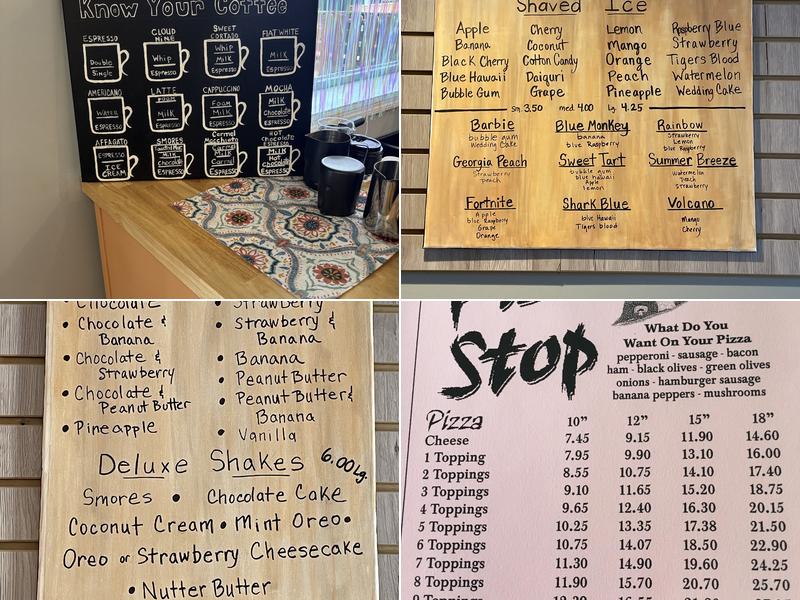 Know Your Coffee
ESPRESSO
Double
Single
CLOUD
NINE
Whip
ESPRESSO
SWEET
CORTADO
Whip
Milk
ESPRESSO
FLAT WHITE
Milk
ESPRESSO
AMERICANO
WATER
ESPRESSO
LATTE
FOAM
Milk
ESPRESSO
CAPPUCCINO
FOAM
Milk
ESPRESSO
MOCHA
Milk
Chocolate
ESPRESSO
AFFAGATO
ESPRESSO
ICE
CREAM
SMORES
Milk
Chocolate
ESPRESSO
Carmel
Macchiato
Milk
Carmel
HOT
Chocolate
ESPRESSO
Milk
Hot
Chocolate
ESPRESSO
Shaved Ice
Apple
Banana
Black Cherry
Blue Hawaii
Bubble Gum
Cherry
Coconut
Cotton Candy
Daiquri
Grape
Lemon
Mango
Orange
Peach
Pineapple
Raspberry Blue
Strawberry
Tigers Blood
Watermelon
Wedding Cake
Sm. 3.50 med 4.00 Lg. 4.25
Barbie
bubble gum
Wedding Cake
Blue Monkey
banana
blue Raspberry
Rainbow
Strawberry
Lemon
blue Raspberry
Georgia Peach
Strawberry
peach
Sweet Tart
bubble gum
blue hawaii
Apple
lemon
Summer Breeze
Watermelon
Peach
Strawberry
Fortnite
Apple
blue Raspberry
Grape
Orange
Shark Blue
blue Hawaii
Tigers blood
Volcano
Mango
Cherry
• Chocolate
• Chocolate &
Banana
• Chocolate &
Strawberry
• Chocolate &
Peanut Butter
• Pineapple
• Strawberry
• Strawberry &
Banana
• Banana
• Peanut Butter
• Peanut Butter &
Banana
• Vanilla
Deluxe Shakes 6.00 Lg.
Smores • Chocolate Cake
Coconut Cream • Mint Oreo •
Oreo or Strawberry Cheesecake
• Nutter Butter
Stop
What Do You
Want On Your Pizza
pepperoni - sausage - bacon
ham - black olives - green olives
onions - hamburger sausage
banana peppers - mushrooms
Pizza 10" 12" 15" 18"
Cheese 7.45 9.15 11.90 14.60
1 Topping 7.95 9.90 13.10 16.00
2 Toppings 8.55 10.75 14.10 17.40
3 Toppings 9.10 11.65 15.20 18.75
4 Toppings 9.65 12.40 16.30 20.15
5 Toppings 10.25 13.35 17.38 21.50
6 Toppings 10.75 14.07 18.50 22.90
7 Toppings 11.30 14.90 19.60 24.25
8 Toppings 11.90 15.70 20.70 25.70